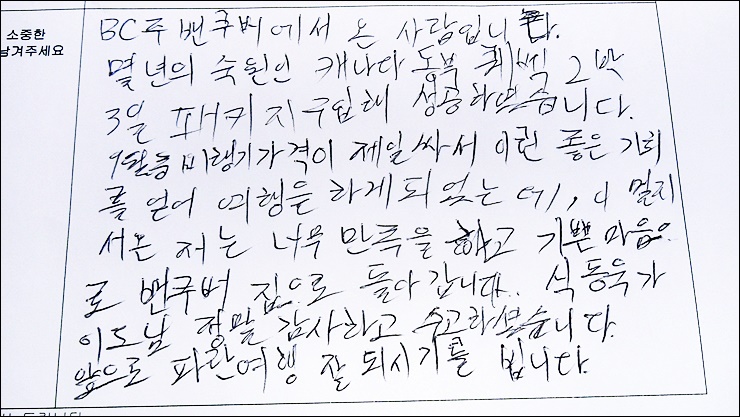 소중한
남겨주세요
BC주 밴쿠버에서 온 사람입니다.
몇년의 숙원인 캐나다 동부 퀘벡 2박
3일 패키지 구입해 성공하였습니다.
9월중 비행기가격이 제일싸서 이런 좋은 기회
를 얻어 여행을 하게되었는데, 멀리
서온 저는 너무 만족을 하고 기쁜 마음으
로 밴쿠버 집으로 돌아갑니다. 식동욱가
이드님 정말 감사하고 수고하셨습니다.
앞으로 파란여행 잘 되시기를 빕니다.